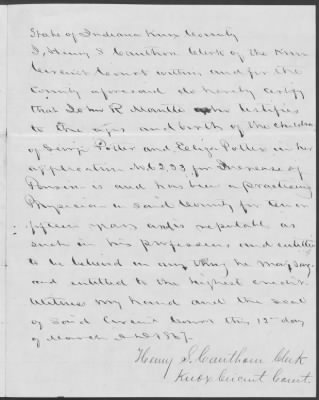 State of Indiana Knox County
I, Henry S Cauthorn Clerk of the Knox
Circuit Court within and for the
County aforesaid do hereby certify
that John R Mantle who testifies
to the ages and birth of the children
of George Potter and Eliza Potter in her
application No 2,33 for Increase of
Pension is and has been a practicing
Physician in said County for ten or
fifteen years and is reputable as
such in his profession and entitled
to be believed on any thing he may say
and entitled to the highest credit.
Witness my hand and the seal
of said Circuit Court this 12th day
of March A.D. 1867.
Henry S. Cauthorn Clerk
Knox Circuit Court.